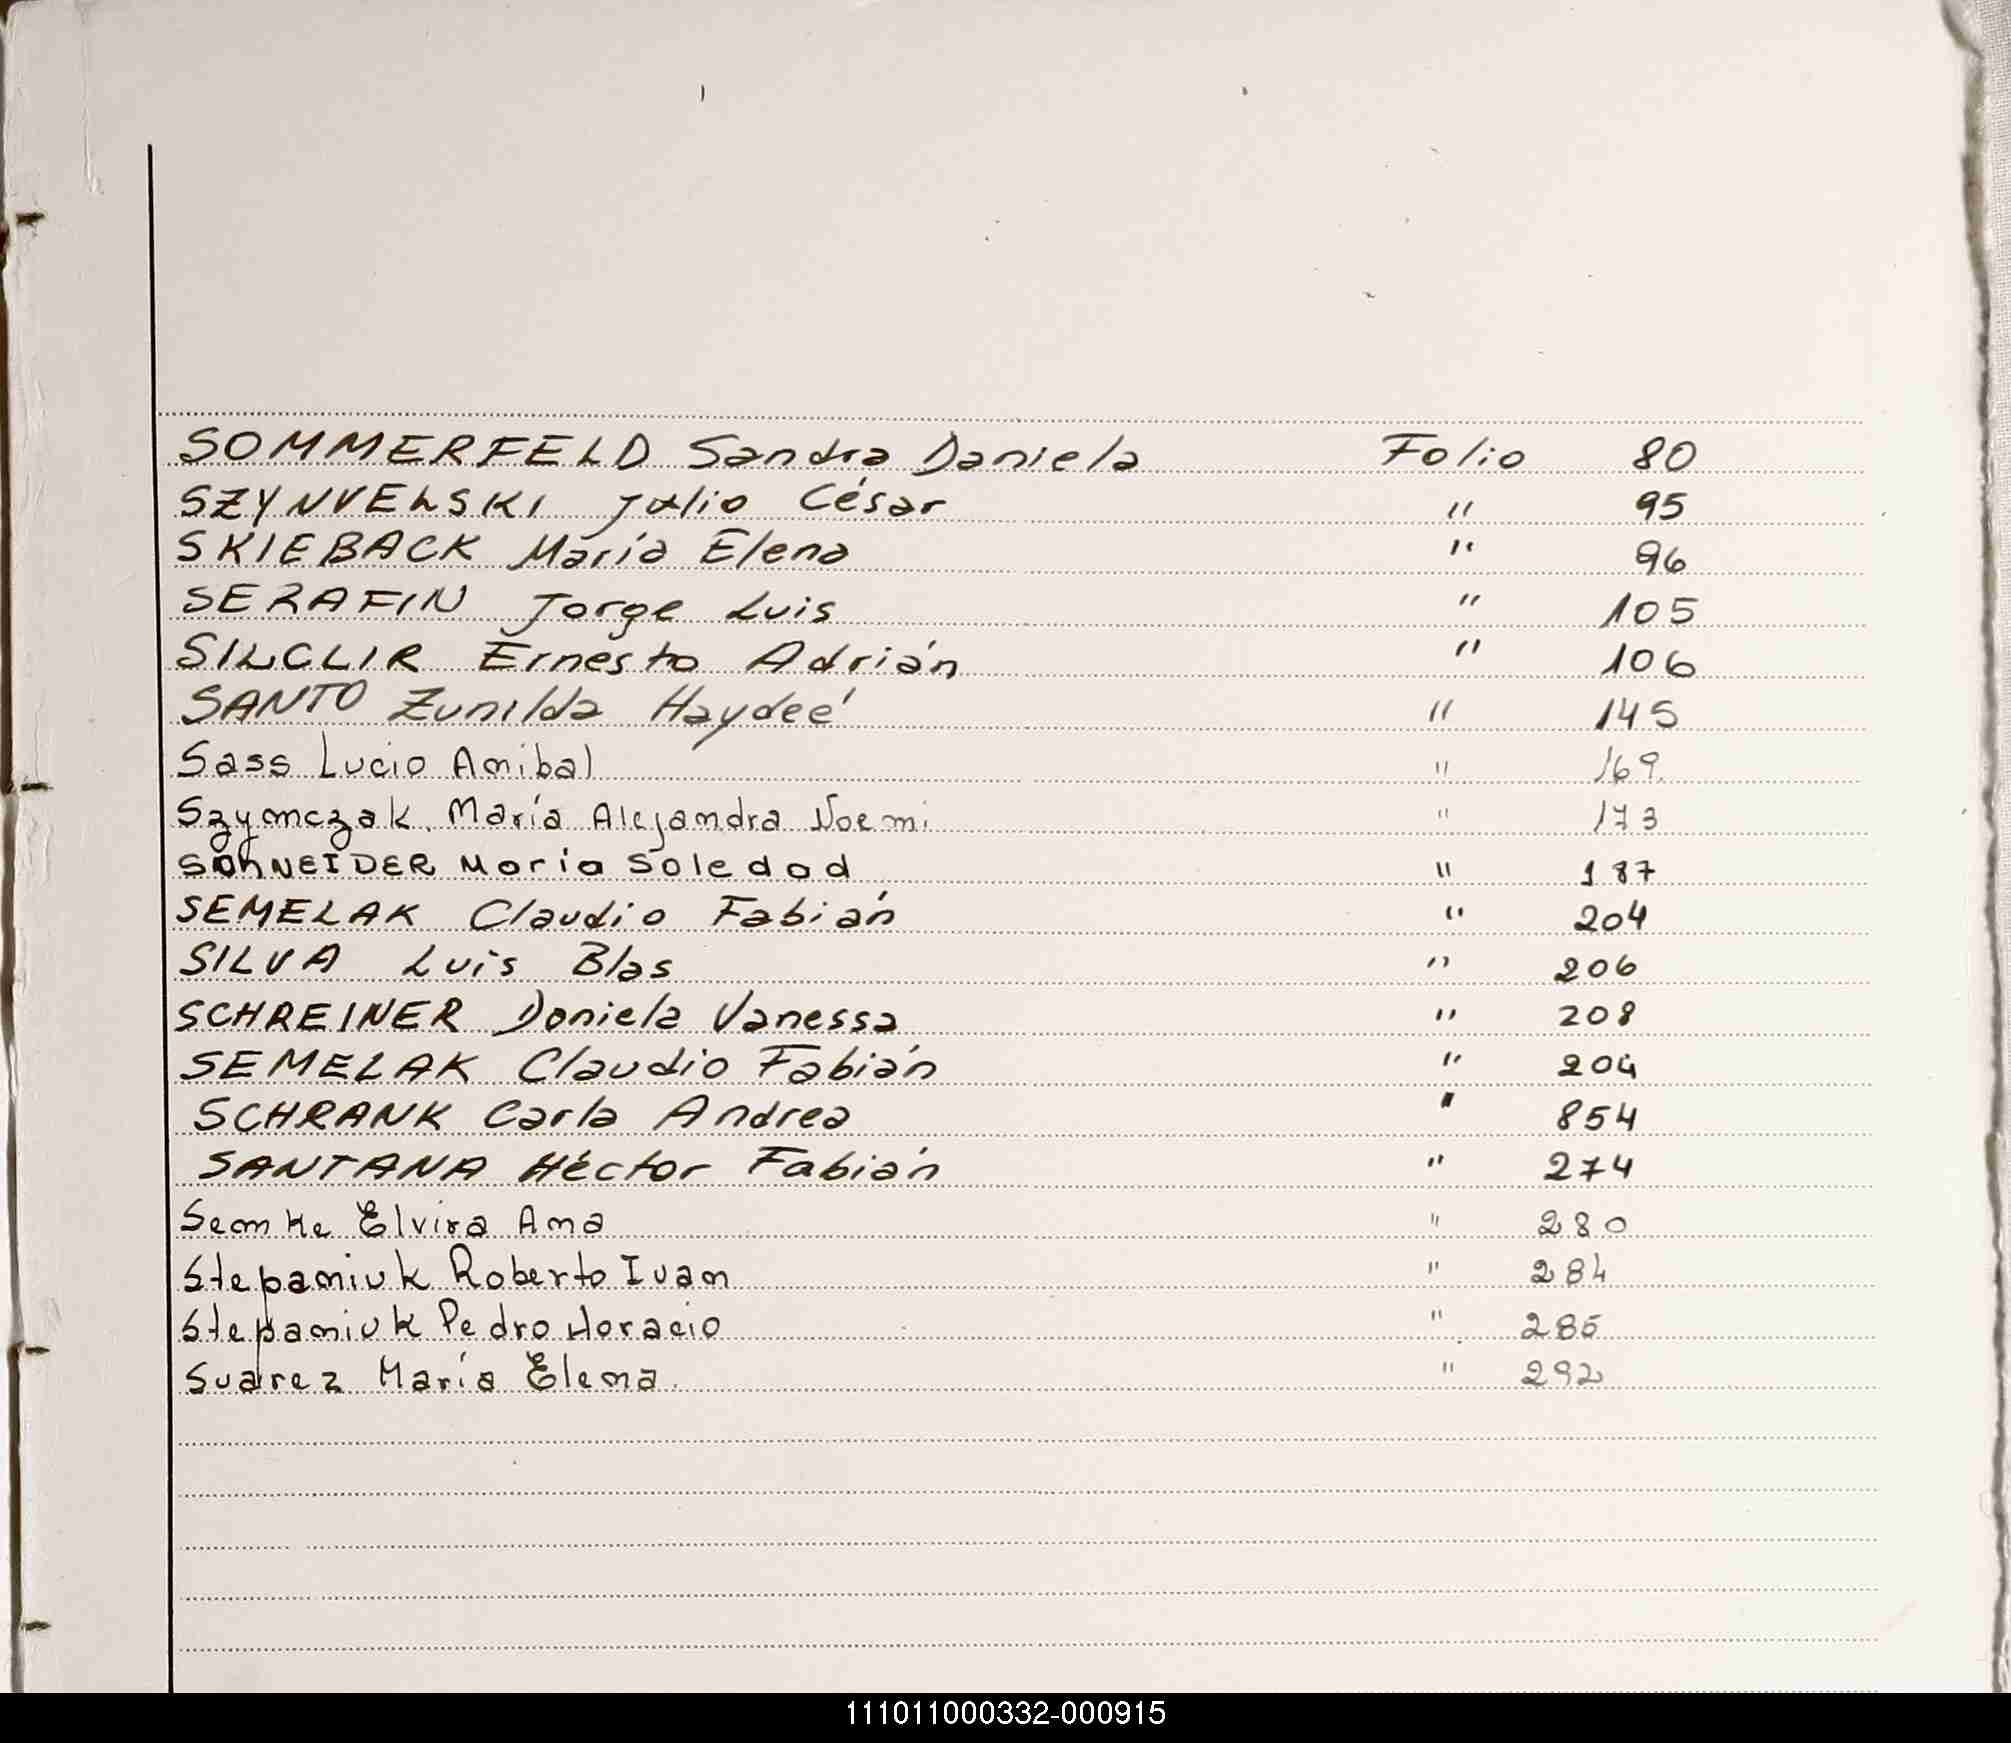 SOMMERFELD Sandra Daniela Folio 80
SZYNVELSKI Julio César " 95
SKIEBACK María Elena " 96
SERAFIN Jorge Luis " 105
SILCLIR Ernesto Adrián " 106
SANTO Zunilda Haydeé " 145
Sass Lucio Anibal " 169
Szymczak María Alejandra Noemi " 173
SChNEIDER Maria Soledad " 187
SEMELAK Claudio Fabián " 204
SILVA Luis Blas " 206
SCHREINER Daniela Vanessa " 208
SEMELAK Claudio Fabián " 204
SCHRANK Carla Andrea " 854
SANTANA Héctor Fabián " 274
Semke Elvira Ana " 280
Stepaniuk Roberto Ivan " 284
Stepaniuk Pedro Horacio " 285
Suarez María Elena " 292
111011000332-000915